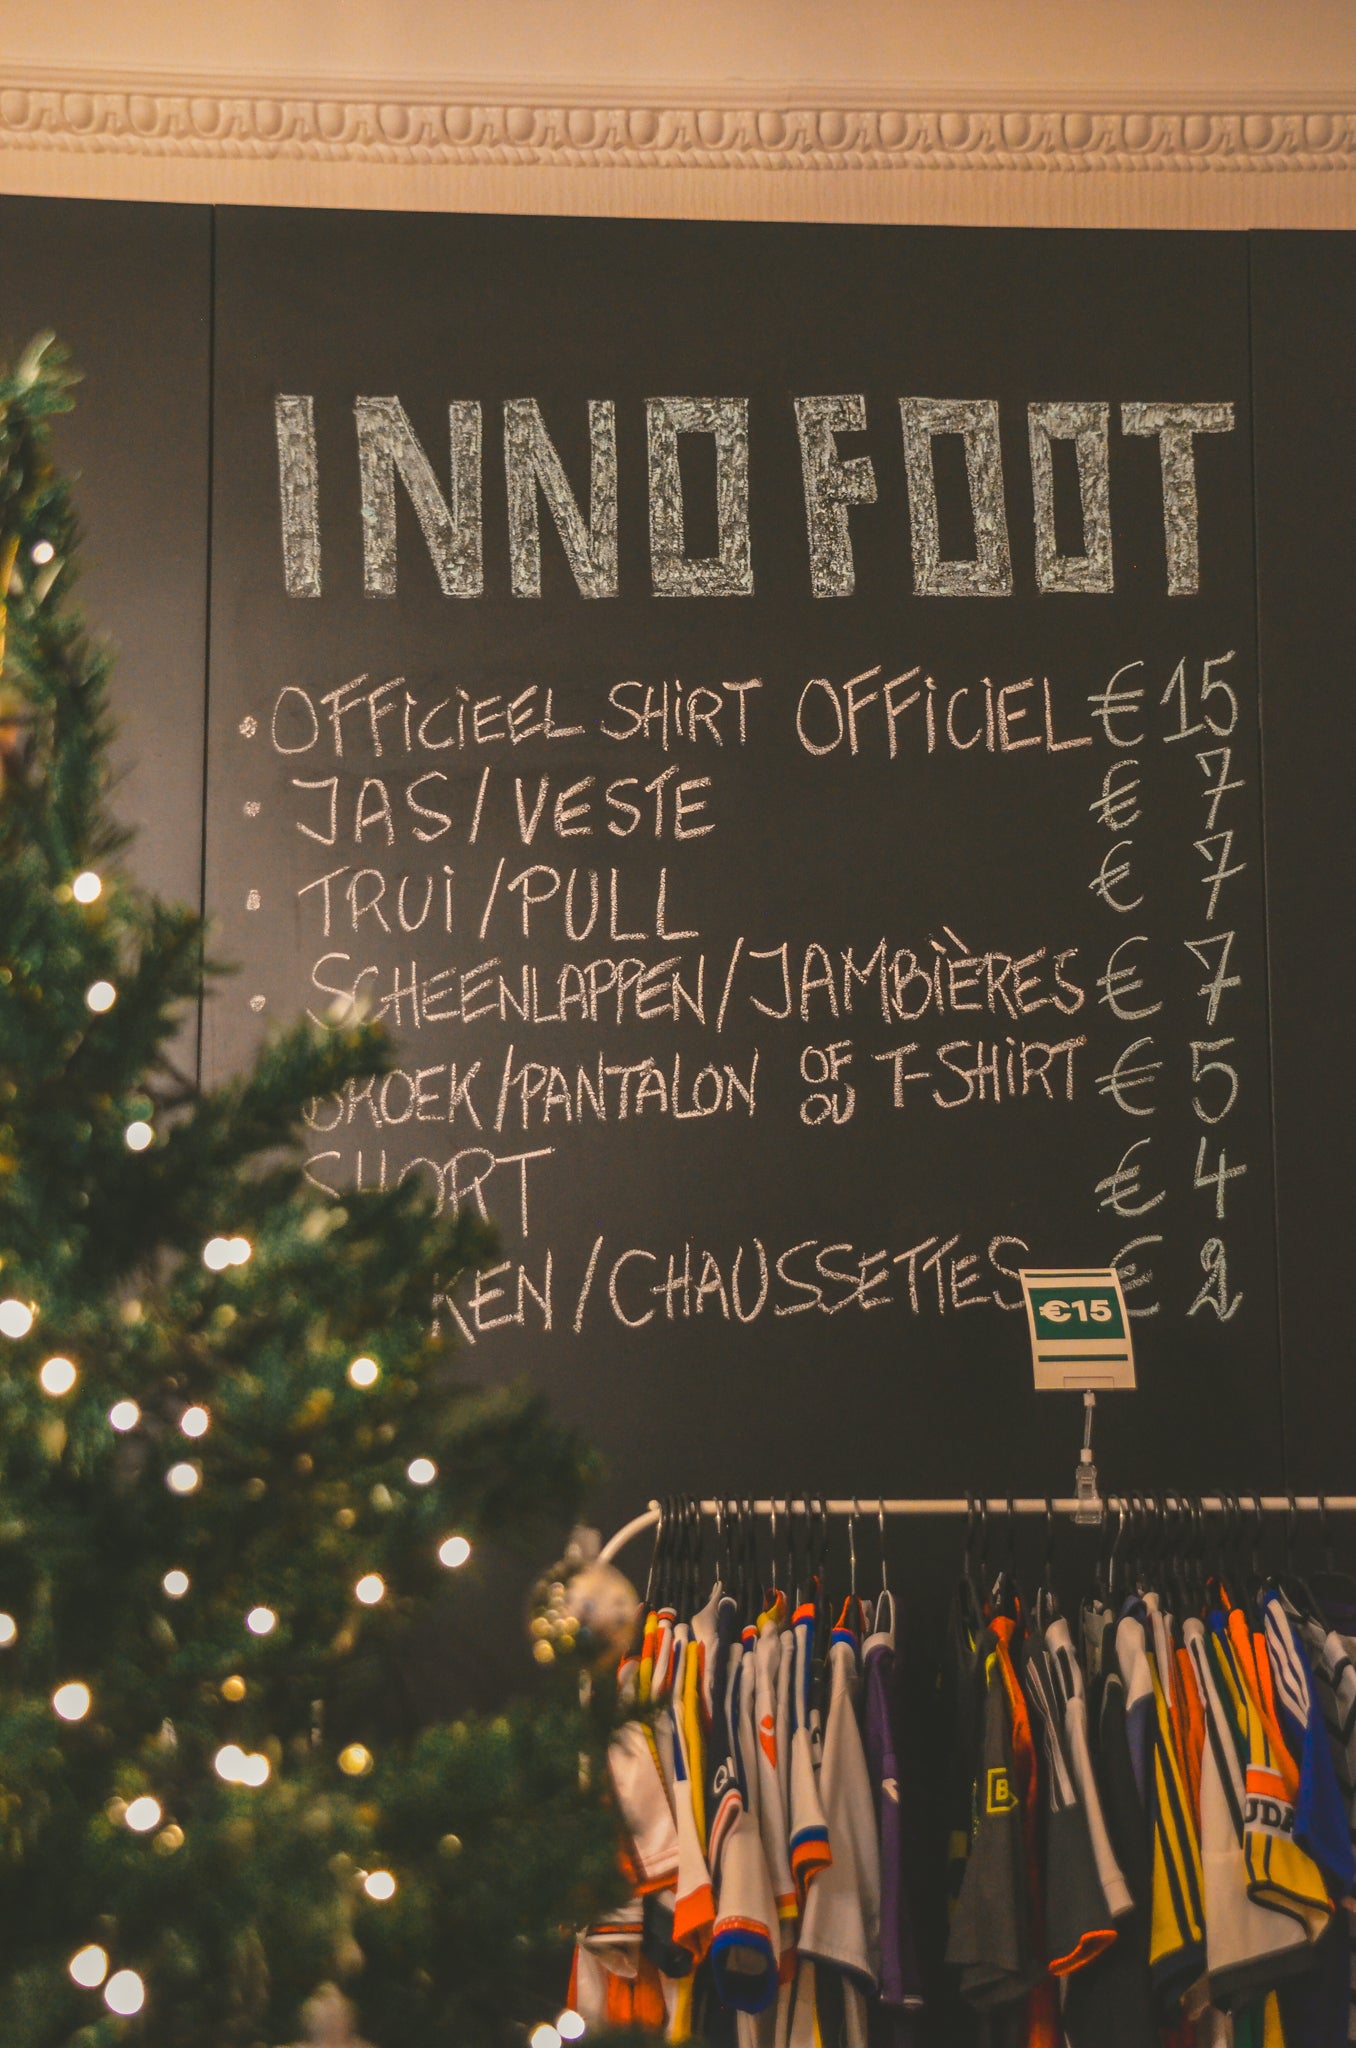 INNO FOOT
• OFFICIEEL SHIRT OFFICIEL € 15
• JAS/VESTE € 7
• TRUI/PULL € 7
• SCHEENLAPPEN/JAMBIÈRES € 7
BROEK/PANTALON OF OU T-SHIRT € 5
SHORT € 4
KEN/CHAUSSETTES € 2
€15
B